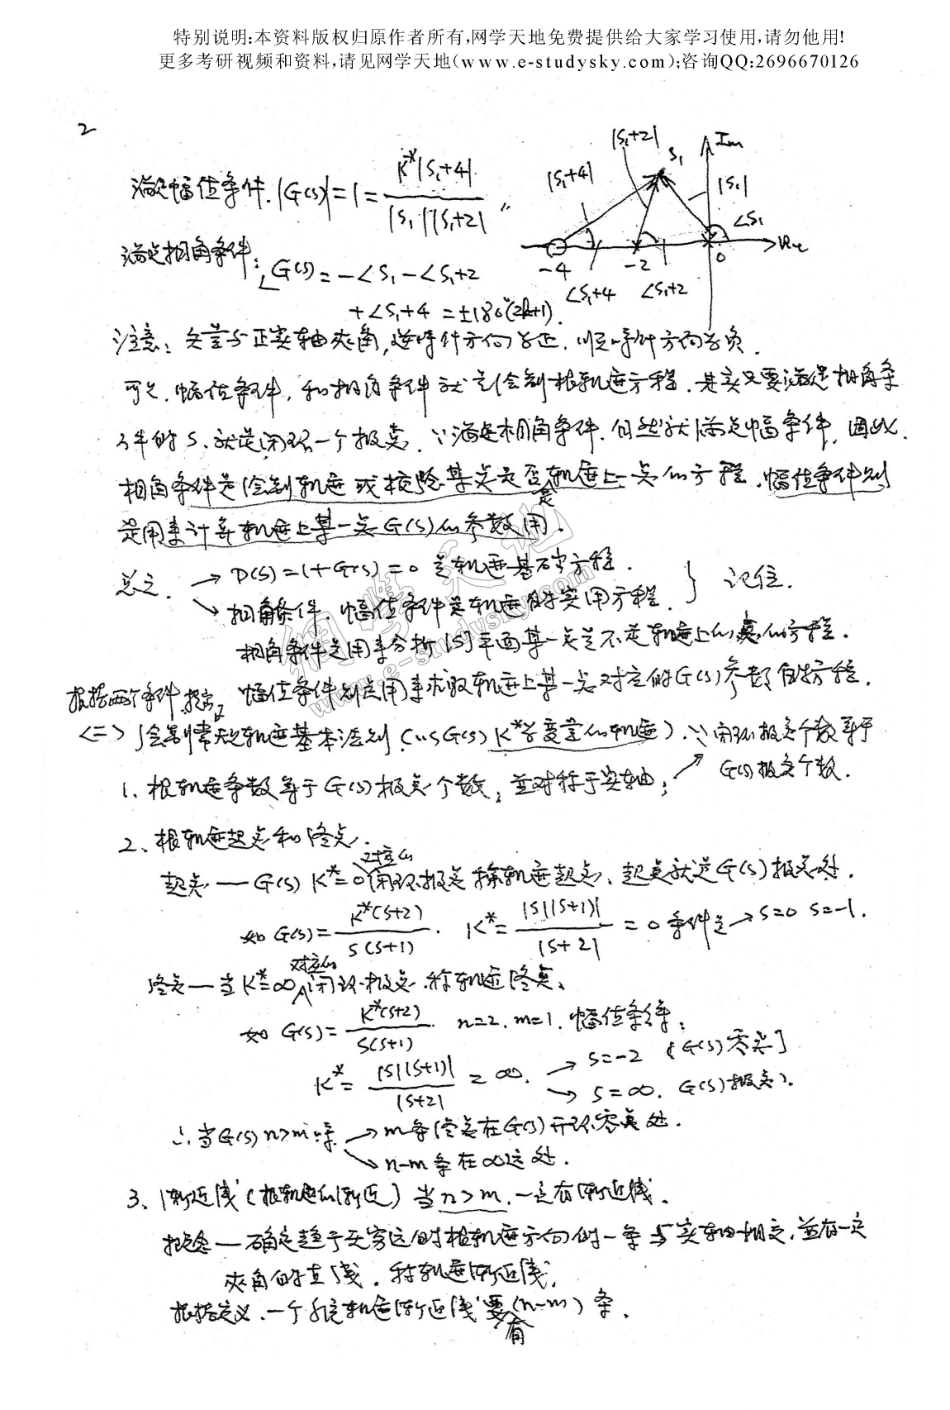 特别说明:本资料版权归原作者所有,网学天地免费提供给大家学习使用,请勿他用!
更多考研视频和资料,请见网学天地(www.e-studysky.com);咨询QQ:2696670126
2
满足幅值条件. |G(s)|=1= K*|S₁+4| / |S₁||S₁+2|
|S₁+2| S₁ Im
|S₁+4| |S₁|
∠S₁
-4 -2 0 Re
∠S₁+4 ∠S₁+2
满足相角条件: ∠G(s)=-∠S₁-∠S₁+2
+∠S₁+4=±180°(2k+1).
注意: 矢量与正实轴夹角,逆时针方向为正,顺时针方向为负.
可见,幅值条件,和相角条件就是绘制根轨迹方程.其实只要满足相角条
件的S,就是闭环一个极点.∵满足相角条件,自然就满足幅条件,因此.
相角条件是绘制轨迹或校验某点是否是轨迹上一点的方程.幅值条件则
是用来计算轨迹上某一点G(s)的参数用.
总之. → D(s)=1+G(s)=0 是轨迹基本方程. } 记住.
↘ 相角条件.幅值条件是轨迹的实用方程.
相角条件是用来分析[S]平面某一点是不是轨迹上的点的方程.
根据两个条件, 幅值条件则是用来求取轨迹上某一点对应的G(s)参数的方程.
<二> 绘制常规轨迹基本法则(以G(s)K*为变量的轨迹).∵闭环极点个数等于
1、根轨迹条数等于G(s)极点个数,并对称于实轴; ↗ G(s)极点个数.
2、根轨迹起点和终点.
起点—G(s) K*=0对应的闭环极点称轨迹起点、起点就是G(s)极点处.
如 G(s)= K*(s+2) / s(s+1) . K*= |s||s+1| / |s+2| =0条件是→s=0 s=-1.
终点—当K*=∞对应的闭环极点.称轨迹终点、
如 G(s)= K*(s+2) / s(s+1) n=2. m=1. 幅值条件:
K*= |s||s+1| / |s+2| =∞. → s=-2 (G(s)零点]
→ s=∞. G(s)极点).
∴当G(s) n>m时 →m条终点在G(s)开环零点处.
↘n-m条在∞远处.
3、渐近线(根轨迹的渐近)当n>m.一定有渐近线.
概念—确定趋于无穷远的根轨迹方向的一条与实轴相交,并有一定
夹角的直线.称轨迹渐近线.
根据定义.一个系统轨迹渐近线要有(n-m)条.
网学天地
www.e-studysky.com